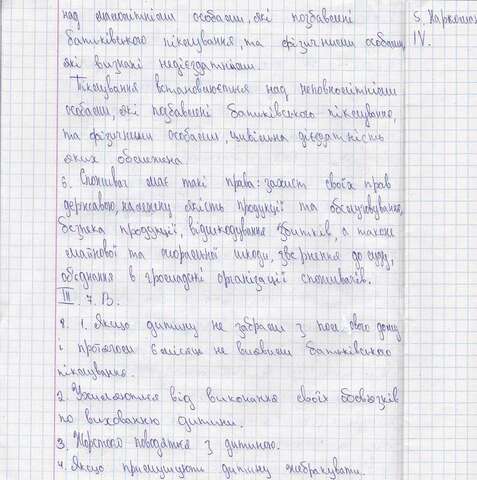 над малолітніми особами, які позбавлені
батьківського піклування, та фізичними особами,
які визнані недієздатними.
Піклування встановлюється над неповнолітніми
особами, які позбавлені батьківського піклування,
та фізичними особами, цивільна дієздатність
яких обмежена
6. Споживач має такі права: захист своїх прав
державою, належну якість продукції та обслуговування,
безпека продукції, відшкодування збитків, а також
майнової та моральної шкоди, звернення до суду,
обєднання в громадські організації споживачів.
III. 7. В.
1. Якщо дитину не забрали з пол. ового дому
і протягом 6 місяців не виявили батьківського
піклування.
2. Ухиляються від виконання своїх обовязків
по вихованню дитини.
3. Жорстоко поводяться з дитиною.
4. Якщо примушують дитину жебракувати.
5. Наркома
IV.